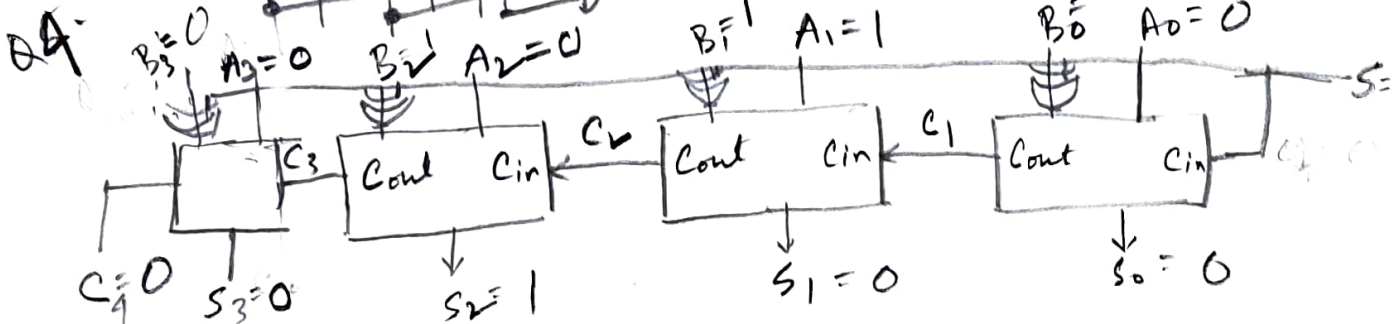 Q4.
B3=0 A3=0 B2=1 A2=0 B1=1 A1=1 B0=0 A0=0
S=
C3 Cout Cin C2 Cout Cin C1 Cout Cin
C4=0 S3=0 S2=1 S1=0 S0=0